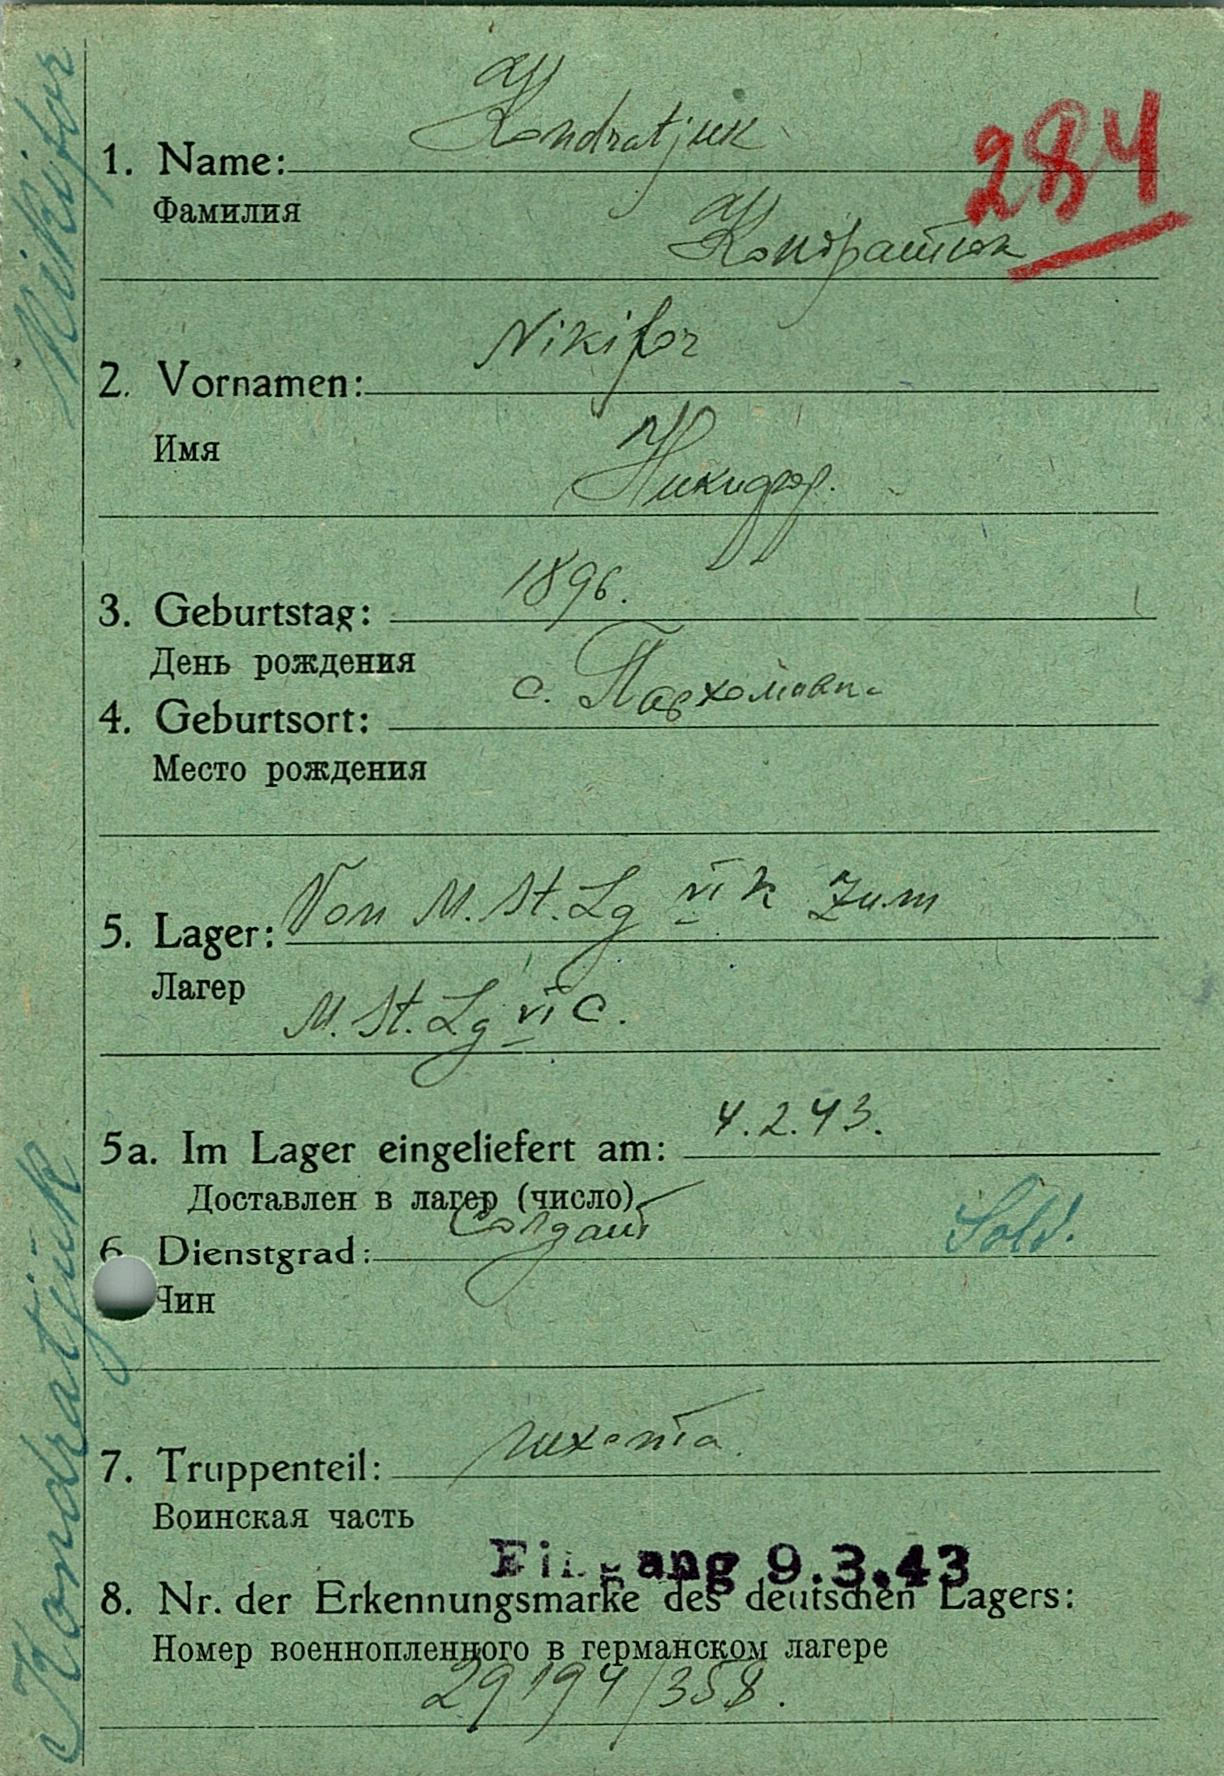 Kondratjuk Nikifor
284
Kondratjuk
1. Name:
Фамилия
Кондратюк
Nikifor
2. Vornamen:
Имя
Никифор.
3. Geburtstag: 1896.
День рождения
4. Geburtsort: с.
Место рождения
5. Lager: Von M. St. Lg VI K zum
Лагер
M. St. Lg VI C.
5a. Im Lager eingeliefert am: 4.2.43.
Доставлен в лагер (число)
6. Dienstgrad: Солдат Sold.
Чин
7. Truppenteil: пехота.
Воинская часть
Eingang 9.3.43
8. Nr. der Erkennungsmarke des deutschen Lagers:
Номер военнопленного в германском лагере
29194/358.